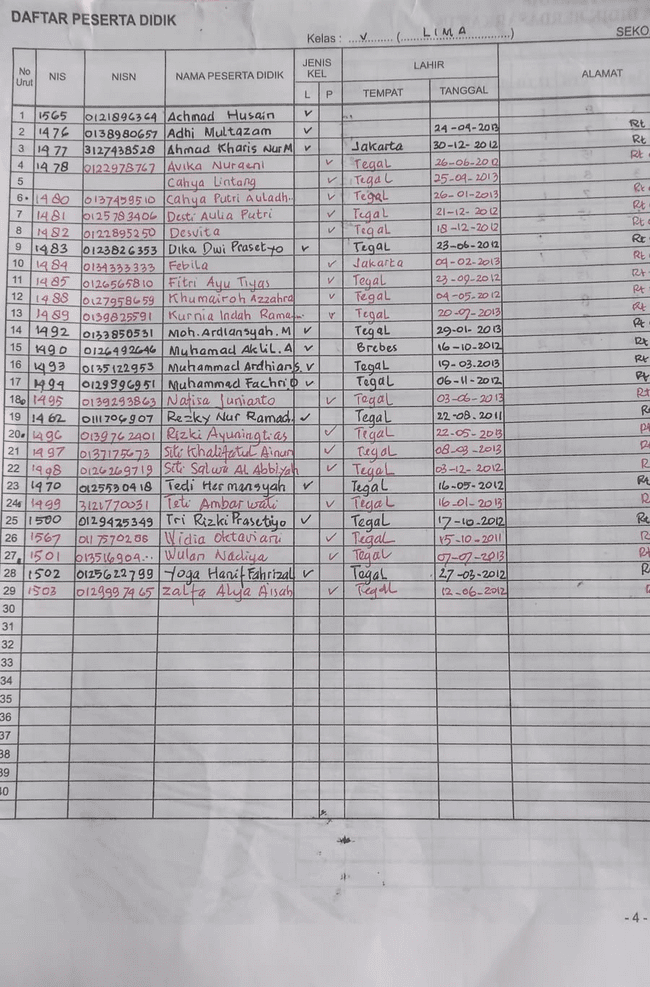 DAFTAR PESERTA DIDIK
Kelas : V (LIMA) SEKO
No Urut NIS NISN NAMA PESERTA DIDIK JENIS KEL L P LAHIR TEMPAT TANGGAL ALAMAT
1 1565 0121896364 Achmad Husain ✓
2 1476 0138980657 Adhi Multazam ✓ 24-09-2013 Rt
3 1477 3127438528 Ahmad Kharis Nur M ✓ Jakarta 30-12-2012 Rt
4 1478 0122978767 Avika Nuraeni ✓ Tegal 26-06-2012 Rt
5 Cahya Lintang ✓ Tegal 25-09-2013
6 1480 0137458510 Cahya Putri Auladh.. ✓ Tegal 26-01-2013 Rt
7 1481 0125783406 Desti Aulia Putri ✓ Tegal 21-12-2012 Rt
8 1482 0122895250 Desvita ✓ Tegal 18-12-2012 Rt
9 1483 0123826353 Dika Dwi Prasetyo ✓ Tegal 23-06-2012 Rt
10 1484 0134333333 Febila ✓ Jakarta 09-02-2013 Rt
11 1485 0126565810 Fitri Ayu Tiyas ✓ Tegal 23-09-2012 Rt
12 1488 0127958659 Khumairoh Azzahra ✓ Tegal 04-05-2012 Rt
13 1489 0139825591 Kurnia Indah Rama.. ✓ Tegal 20-07-2013 Rt
14 1492 0133850531 Moh. Ardiansyah. M ✓ Tegal 29-01-2013 Rt
15 1490 0126492646 Muhamad Aklil. A ✓ Brebes 16-10-2012 Rt
16 1493 0135122953 Muhammad Ardhians. ✓ Tegal 19-03-2013 Rt
17 1494 0129996951 Muhammad Fachri ✓ Tegal 06-11-2012 Rt
18 1495 0139293863 Nafisa Junianto ✓ Tegal 03-06-2013 Rt
19 1462 0111706907 Rezky Nur Ramad.. ✓ Tegal 22-08-2011 Rt
20 1496 0139762401 Rizki Ayuningtias ✓ Tegal 22-05-2013 Rt
21 1497 0137175673 Siti Khalifatul Ainun ✓ Tegal 08-03-2013 Rt
22 1498 0126269719 Siti Salwa Al Abbiyah ✓ Tegal 03-12-2012 Rt
23 1470 0125530418 Tedi Hermansyah ✓ Tegal 16-05-2012 Rt
24 1499 3121770031 Teti Ambarwati ✓ Tegal 16-01-2013 Rt
25 1500 0129425349 Tri Rizki Prasetiyo ✓ Tegal 17-10-2012 Rt
26 1567 0117570208 Widia Oktaviani ✓ Tegal 15-10-2011 R
27 1501 013516904.. Wulan Nadiya ✓ Tegal 07-07-2013 Rt
28 1502 0125622799 Yoga Hanif Fahrizal ✓ Tegal 27-03-2012 R
29 1503 0129997465 Zalfa Alya Aisah ✓ Tegal 12-06-2012
30
31
32
33
34
35
36
37
38
39
40
- 4 -